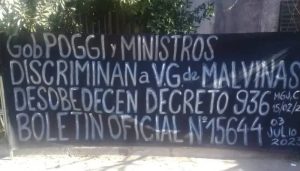 Gob POGGI y MINISTROS
DISCRIMINAN a V.G de MALVINAS
DESOBEDECEN DECRETO 936
BOLETIN OFICIAL Nº15644
03
JULIO